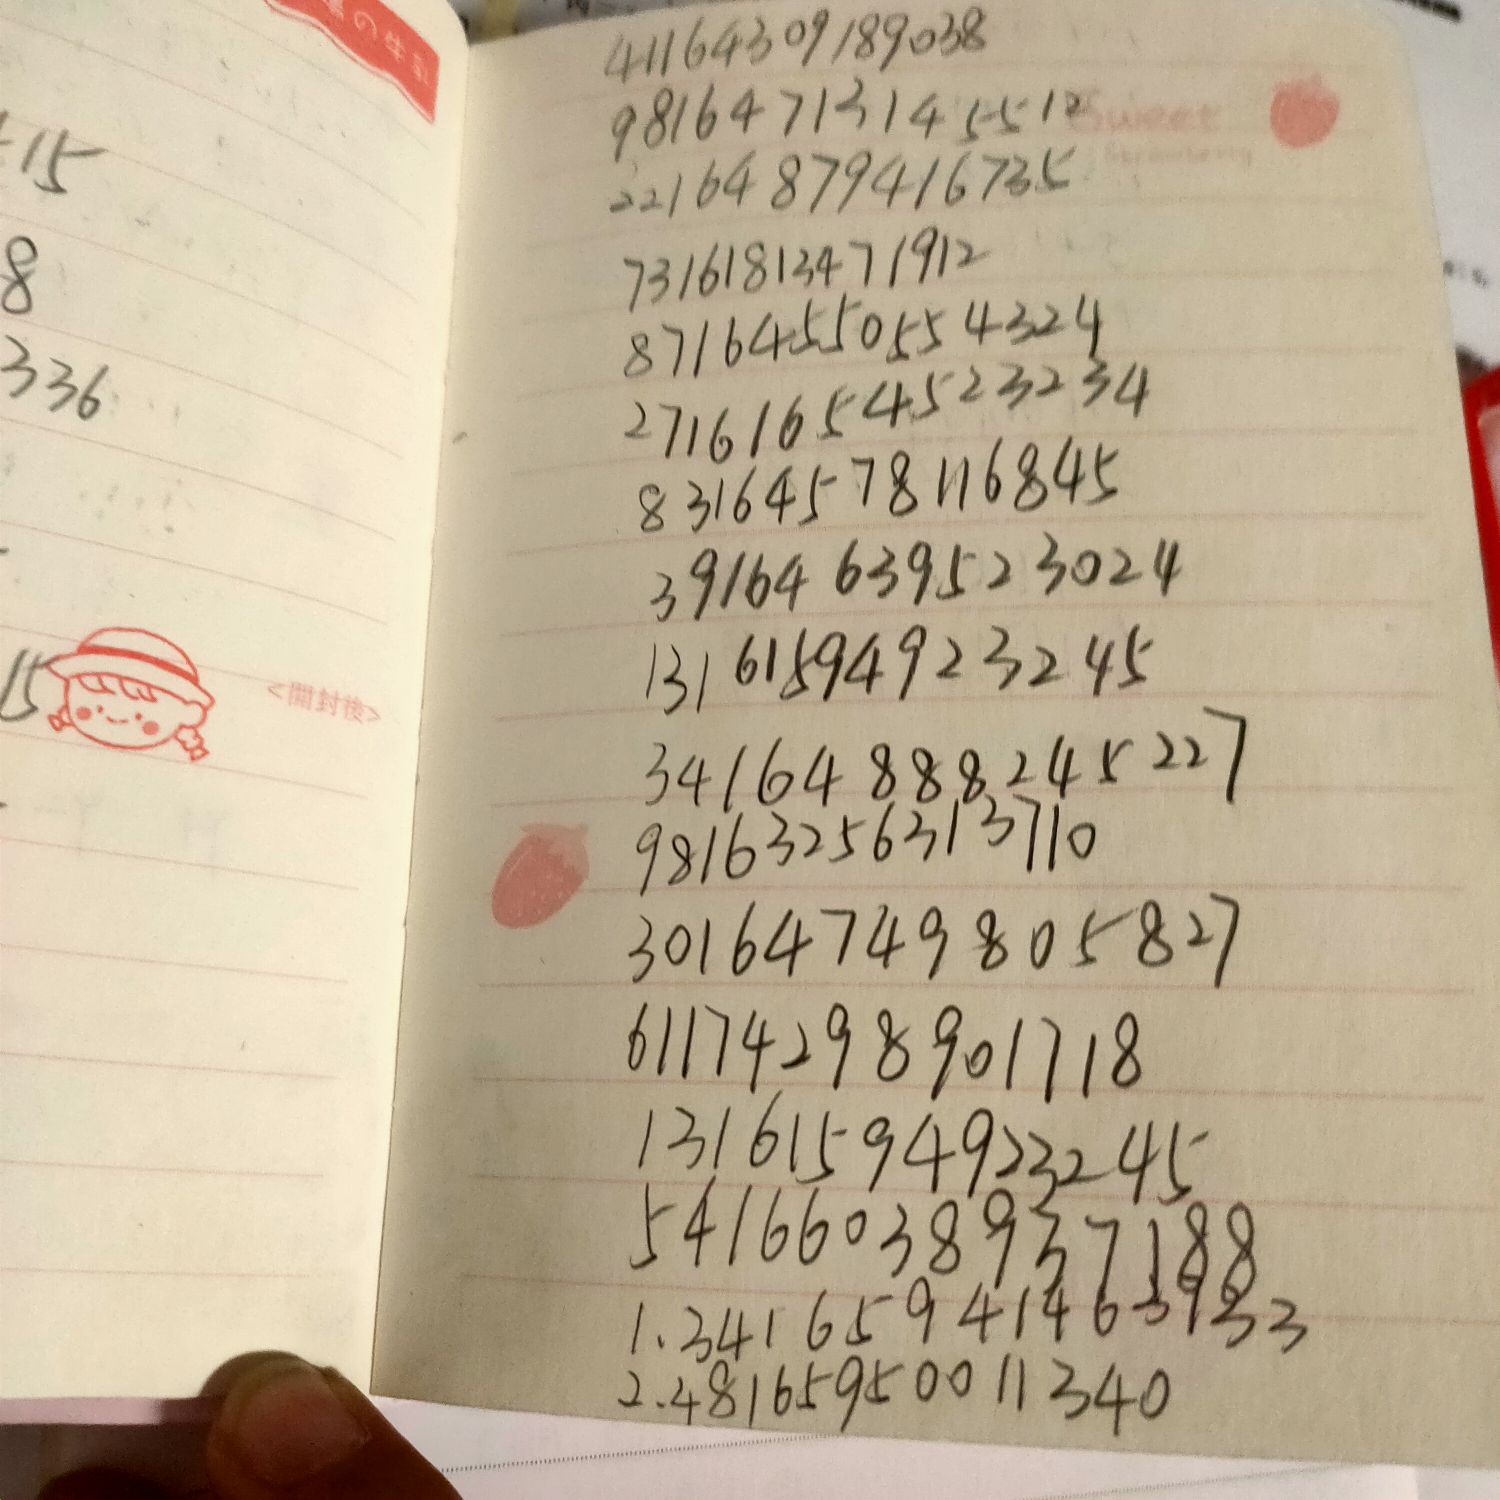 15
8
336
15
<開封後>
41164309189038
Sweet
Strawberry
98164713145512
22164879416735
73161813471912
87164550554324
27161654523234
83164578116845
39164639523024
13161594923245
34164888245227
98163256313710
30164749805827
61174298901718
13161594923245
54166038937188
1.34165941463933
2.48165950011340